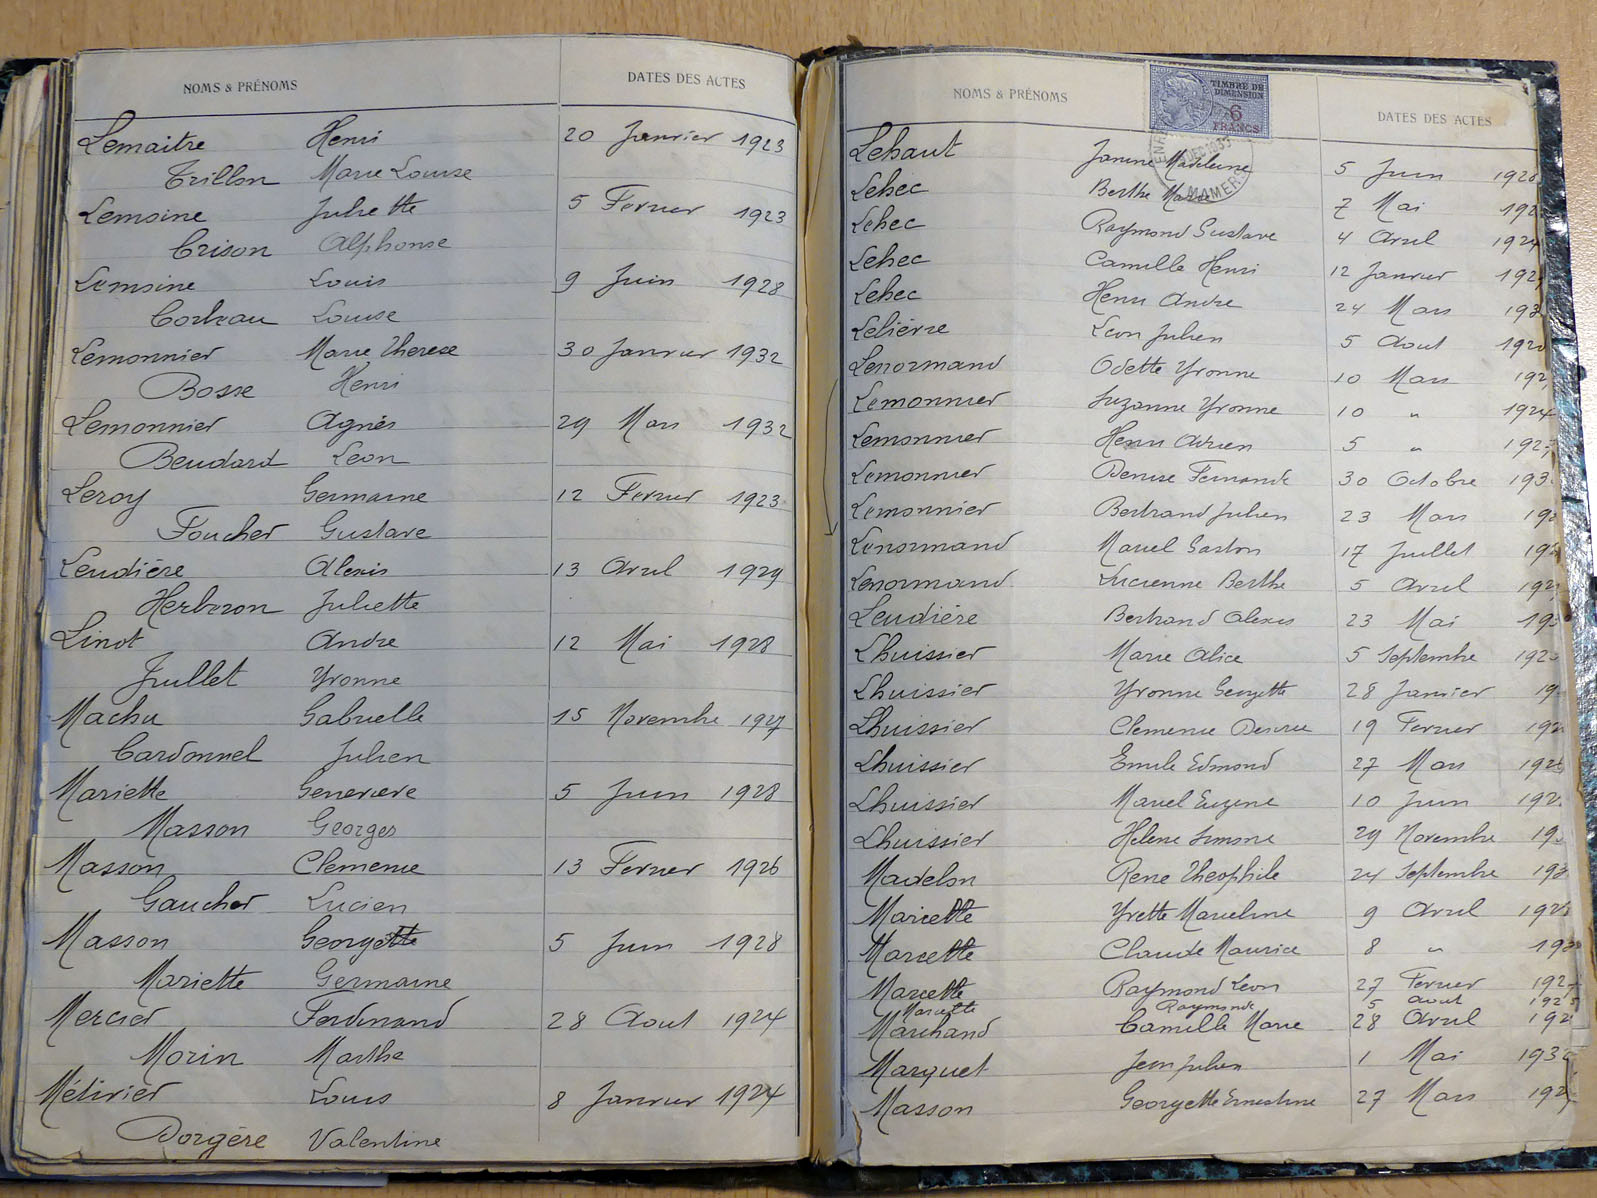 NOMS & PRÉNOMS DATES DES ACTES
Lemaitre Henri 20 Janvier 1923
Trillon Marie Louise
Lemoine Juliette 5 Fevrier 1923
Crison Alphonse
Lemoine Louis 9 Juin 1928
Corbeau Louise
Lemonnier Marie Therese 30 Janvier 1932
Bosse Henri
Lemonnier Agnès 29 Mars 1932
Beudard Leon
Leroy Germaine 12 Fevrier 1923
Foucher Gustave
Leudière Alexis 13 Avril 1929
Herbron Juliette
Linot Andre 12 Mai 1928
Juillet Yvonne
Machu Gabrielle 15 Novembre 1927
Cardonnel Julien
Mariette Genevieve 5 Juin 1928
Masson Georges
Masson Clemence 13 Fevrier 1926
Gaucher Lucien
Masson George 5 Juin 1928
Mariette Germaine
Mercier Ferdinand 28 Aout 1924
Morin Marthe
Métivier Louis 8 Janvier 1924
Dorgère Valentine
NOMS & PRÉNOMS DATES DES ACTES
TIMBRE DE
DIMENSION
6
FRANCS
MAMERS
Lehaut Janine Madeleine 5 Juin
Lehec Berthe 7 Mai
Lehec Raymond Gustave 4 Avril 1924
Lehec Camille Henri 12 Janvier
Lehec Henri Andre 24 Mars
Lelièvre Leon Julien 5 Aout
Lenormand Odette Yvonne 10 Mars
Lemonnier Suzanne Yvonne 10 " 1924
Lemonnier Henri Adrien 5 "
Lemonnier Denise Fernande 30 Octobre
Lemonnier Bertrand Julien 23 Mars
Lenormand Marcel Gaston 17 Juillet
Lenormand Lucienne Berthe 5 Avril
Leudière Bertrand Alexis 23 Mai
Lhuissier Marie Alice 5 Septembre
Lhuissier Yvonne Georgette 28 Janvier
Lhuissier Clemence Desiree 19 Fevrier
Lhuissier Emile Edmond 27 Mars
Lhuissier Marcel Eugene 10 Juin
Lhuissier Helene Simone 29 Novembre
Madelon Rene Theophile 24 Septembre
Mariette Yvette Marceline 9 Avril
Mariette Claude Maurice 8 "
Mariette Raymond Leon 27 Fevrier
Mariette Raymonde 5 Aout
Marchand Camille Marie 28 Avril
Marquet Jean Julien 1 Mai
Masson Georgette Ernestine 27 Mars